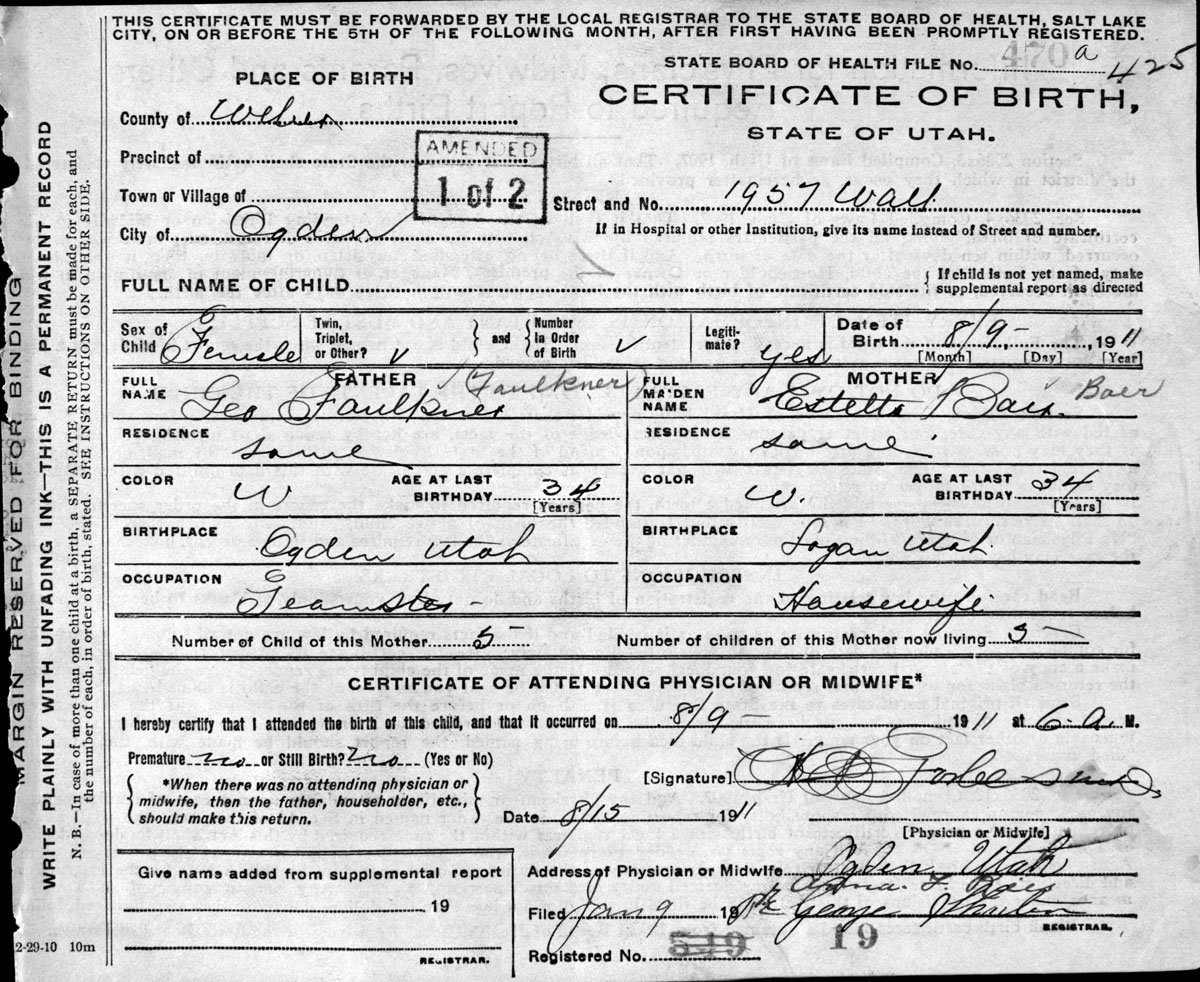 THIS CERTIFICATE MUST BE FORWARDED BY THE LOCAL REGISTRAR TO THE STATE BOARD OF HEALTH, SALT LAKE
CITY, ON OR BEFORE THE 5TH OF THE FOLLOWING MONTH, AFTER FIRST HAVING BEEN PROMPTLY REGISTERED.
STATE BOARD OF HEALTH FILE No. 470 a 425
PLACE OF BIRTH
CERTIFICATE OF BIRTH,
STATE OF UTAH.
County of Weber
Precinct of
AMENDED
1 of 2
Town or Village of
Street and No. 1957 Wall
City of Ogden
If in Hospital or other Institution, give its name instead of Street and number.
FULL NAME OF CHILD
If child is not yet named, make
supplemental report as directed
Sex of
Child Female
Twin,
Triplet,
or Other? v
and
Number
in Order
of Birth v
Legiti-
mate? yes
Date of
Birth 8/9- 1911
[Month] [Day] [Year]
FATHER (Faulkner)
FULL
NAME Geo Faulkner
MOTHER
FULL
MAIDEN
NAME Estella Bair Baer
RESIDENCE same
RESIDENCE same
COLOR W
AGE AT LAST
BIRTHDAY 34
[Years]
COLOR W.
AGE AT LAST
BIRTHDAY 34
[Years]
BIRTHPLACE Ogden Utah
BIRTHPLACE Logan Utah
OCCUPATION Teamster -
OCCUPATION Housewife
Number of Child of this Mother 5 -
Number of children of this Mother now living 5 -
CERTIFICATE OF ATTENDING PHYSICIAN OR MIDWIFE*
I hereby certify that I attended the birth of this child, and that it occurred on 8/9 - 1911 at 6. a. M.
Premature no or Still Birth? no (Yes or No)
*When there was no attending physician or
midwife, then the father, householder, etc.,
should make this return.
[Signature]
Date 8/15 1911
[Physician or Midwife]
Give name added from supplemental report
19
REGISTRAR.
Address of Physician or Midwife Ogden, Utah
Filed Jan 9 19 George
REGISTRAR.
Registered No. 549 19
MARGIN RESERVED FOR BINDING
WRITE PLAINLY WITH UNFADING INK—THIS IS A PERMANENT RECORD
N. B.—In case of more than one child at a birth, a SEPARATE RETURN must be made for each, and
the number of each, in order of birth, stated. SEE INSTRUCTIONS ON OTHER SIDE.
2-29-10 10m